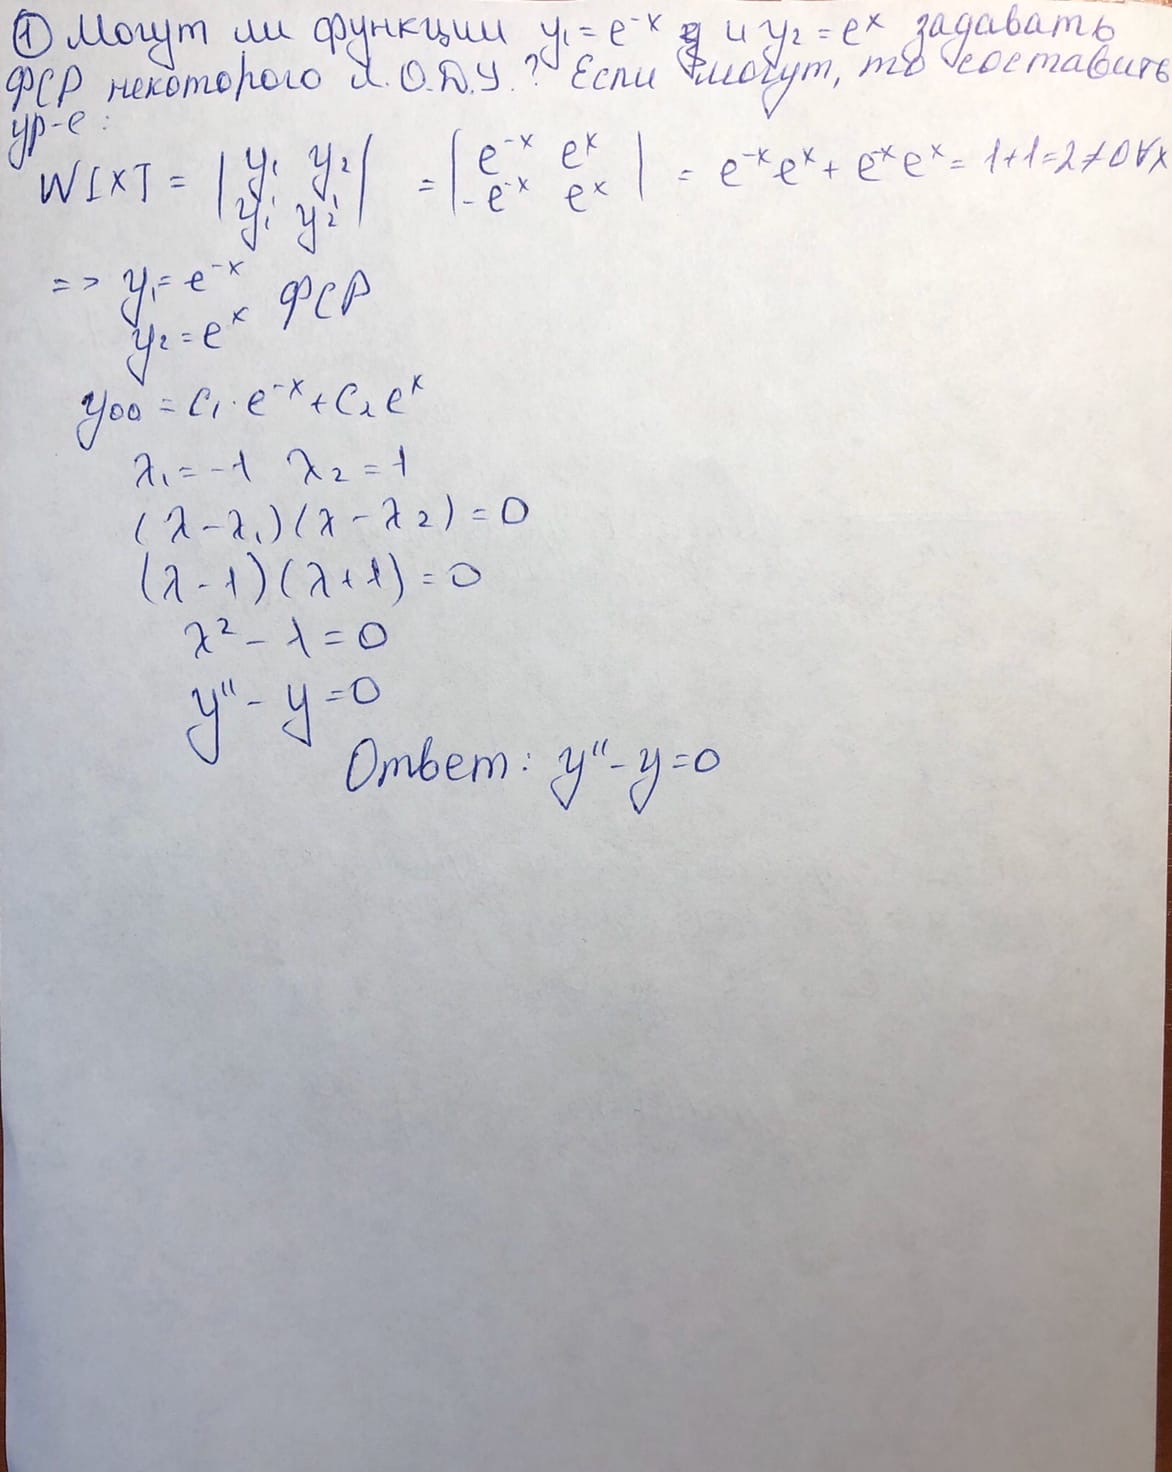 ① Могут ли функции y₁ = e⁻ˣ и y₂ = eˣ задавать
ФСР некоторого л.О.Д.У.? Если могут, то составить
ур-е:
W[x] = | y₁ y₂ | = | e⁻ˣ eˣ | = e⁻ˣeˣ + e⁻ˣeˣ = 1+1=2≠0 ∀x
| y₁' y₂' | | -e⁻ˣ eˣ |
=> y₁ = e⁻ˣ
ФСР
y₂ = eˣ
yоо = C₁·e⁻ˣ + C₂eˣ
λ₁ = -1 λ₂ = 1
(λ - λ₁)(λ - λ₂) = 0
(λ - 1)(λ + 1) = 0
λ² - 1 = 0
y'' - y = 0
Ответ: y'' - y = 0